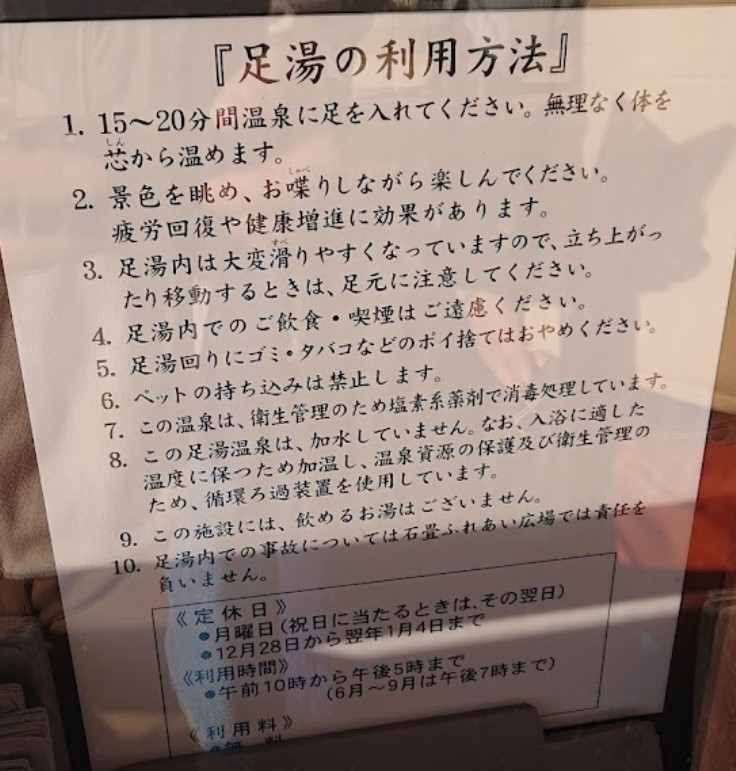 『足湯の利用方法』
1. 15～20分間温泉に足を入れてください。無理なく体を
芯から温めます。
2. 景色を眺め、お喋りしながら楽しんでください。
疲労回復や健康増進に効果があります。
3. 足湯内は大変滑りやすくなっていますので、立ち上がっ
たり移動するときは、足元に注意してください。
4. 足湯内でのご飲食・喫煙はご遠慮ください。
5. 足湯回りにゴミ・タバコなどのポイ捨てはおやめください。
6. ペットの持ち込みは禁止します。
7. この温泉は、衛生管理のため塩素系薬剤で消毒処理しています。
8. この足湯温泉は、加水していません。なお、入浴に適した
温度に保つため加温し、温泉資源の保護及び衛生管理の
ため、循環ろ過装置を使用しています。
9. この施設には、飲めるお湯はございません。
10. 足湯内での事故については石畳ふれあい広場では責任を
負いません。
《定休日》
●月曜日(祝日に当たるときは、その翌日)
●12月28日から翌年1月4日まで
《利用時間》
●午前10時から午後5時まで
(6月～9月は午後7時まで)
《利用料》
●無料